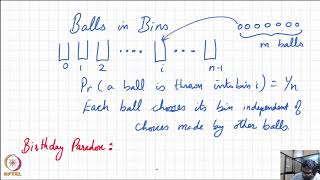 Balls in Bins
m balls
0 1 2 i n-1
Pr (a ball is thrown into bin i) = 1/n
Each ball chooses its bin independent of
choices made by other balls.
Birthday Paradox:
NPTEL